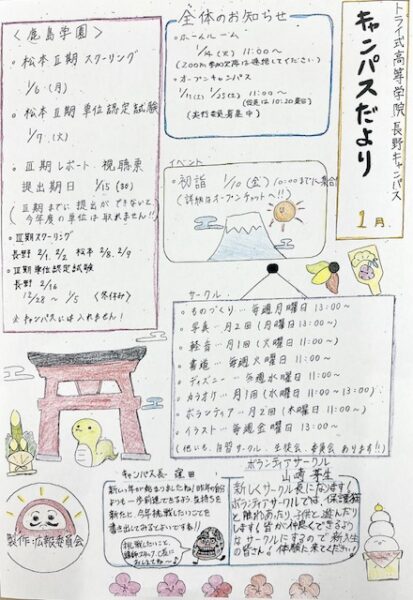 トライ式高等学院長野キャンパス
キャンパスだより
1月
全体のお知らせ
・ホームルーム
1/14(火) 11:00〜
・オープンキャンパス
11:00〜
イベント
・初詣 1/10(金) 10:00までに集合
(詳細はオープンチャットへ!!)
<鹿島学園>
・松本Ⅲ期スクーリング
1/6(月)
・松本Ⅲ期単位認定試験
1/7(火)
・Ⅲ期レポート・視聴票
提出期日 1/15(水)
(Ⅲ期までに提出ができないと、
今年度の単位は取れません!!)
・Ⅲ期スクーリング
長野 2/1, 2/2 松本 2/8, 2/9
・Ⅲ期単位認定試験
長野 2/16
12/28〜1/5 (冬休み)
※キャンパスには入れません!
サークル
・ものづくり…毎週月曜日 13:00〜
・写真…月2回(月曜日 13:00〜)
・軽音…月1回(火曜日 11:00〜)
・書道…毎週火曜日 11:00〜
・ディズニー…毎週水曜日 11:00〜
・カラオケ…月1回(水曜日 11:00〜13:00)
・ボランティア…月2回(木曜日 11:00〜)
・イラスト…毎週金曜日 13:00〜
(他にも、自習サークル、生徒会、委員会あります!!)
キャンパス長 窪田
新しい年が始まりましたね!昨年の自分
よりも一歩前進できるよう気持ちを
新たに、今年挑戦したいことを
書き出してみるとよいですね!!
挑戦したいこと、
ボランティアサークル
新しくサークル長になります!
ボランティアサークルでは、保護猫
と触れあったり、子供と遊んだり
します!皆が仲良くできるような
サークルにするので新入生
の皆さん!体験に来てください!
製作:広報委員会